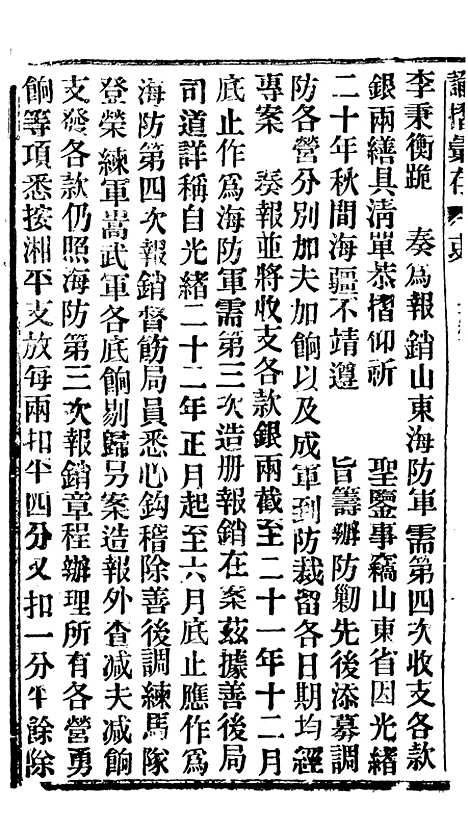 諭摺彙存
李秉衡跪 奏爲報銷山東海防軍需第四次收支各款
銀兩繕具清單恭摺仰祈 聖鑒事竊山東省因光緒
二十年秋間海疆不靖遵 旨籌辦防勦先後添募調
防各營分別加夫加餉以及成軍到防裁留各日期均經
專案 奏報並將收支各款銀兩截至二十一年十二月
底止作爲海防軍需第三次造册報銷在案茲據善後局
司道詳稱自光緒二十二年正月起至六月底止應作爲
海防第四次報銷督飭局員悉心鈎稽除善後調練馬隊
登榮練軍嵩武軍各底餉剔歸另案造報外查減夫減餉
支發各款仍照海防第三次報銷章程辦理所有各營勇
餉等項悉按湘平支放每兩扣平四分又扣一分平餘除